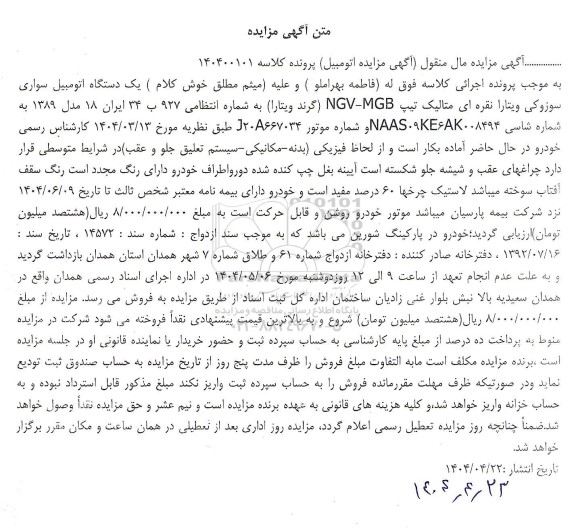 متن آگهی مزایده
...............آگهی مزایده مال منقول (آگهی مزایده اتومبیل) پرونده کلاسه ۱۴۰۴۰۰۱۰۱
به موجب پرونده اجرائی کلاسه فوق له (فاطمه بهراملو ) و علیه (میثم مطلق خوش کلام ) یک دستگاه اتومبیل سواری
سوزوکی ویتارا نقره ای متالیک تیپ NGV-MGB (گرند ویتارا) به شماره انتظامی ۹۲۷ ب ۳۴ ایران ۱۸ مدل ۱۳۸۹ به
شماره شاسی NAAS۰۹KE۶AK۰۰۸۴۹۴و شماره موتور J۲۰A۶۶۷۰۳۴ طبق نظریه مورخ ۱۴۰۴/۰۳/۱۳ کارشناس رسمی
خودرو در حال حاضر آماده بکار است و از لحاظ فیزیکی (بدنه-مکانیکی-سیستم تعلیق جلو و عقب)در شرایط متوسطی قرار
دارد چراغهای عقب و شیشه جلو شکسته است آیینه بغل چپ کنده شده دورواطراف خودرو دارای رنگ مجدد است رنگ سقف
آفتاب سوخته میباشد لاستیک چرخها ۶۰ درصد مفید است و خودرو دارای بیمه نامه معتبر شخص ثالث تا تاریخ ۱۴۰۴/۰۶/۰۹
نزد شرکت بیمه پارسیان میباشد موتور خودرو روشن و قابل حرکت است به مبلغ ۸/۰۰۰/۰۰۰/۰۰۰ ریال(هشتصد میلیون
تومان)ارزیابی گردید؛خودرو در پارکینگ شورین می باشد که به موجب سند ازدواج : شماره سند : ۱۴۵۷۲ ، تاریخ سند :
۱۳۹۲/۰۷/۱۶ ، دفترخانه صادر کننده : دفترخانه ازدواج شماره ۶۱ و طلاق شماره ۷ شهر همدان استان همدان بازداشت گردید
و به علت عدم انجام تعهد از ساعت ۹ الی ۱۲ روزدوشنبه مورخ ۱۴۰۴/۰۵/۰۶ در اداره اجرای اسناد رسمی همدان واقع در
همدان سعیدیه بالا نبش بلوار غنی زادیان ساختمان اداره کل ثبت اسناد از طریق مزایده به فروش می رسد. مزایده از مبلغ
۸/۰۰۰/۰۰۰/۰۰۰ ریال(هشتصد میلیون تومان) شروع و به بالاترین قیمت پیشنهادی نقداً فروخته می شود شرکت در مزایده
منوط به پرداخت ده درصد از مبلغ پایه کارشناسی به حساب سپرده ثبت و حضور خریدار یا نماینده قانونی او در جلسه مزایده
است ،برنده مزایده مکلف است مابه التفاوت مبلغ فروش را ظرف مدت پنج روز از تاریخ مزایده به حساب صندوق ثبت تودیع
نماید ودر صورتیکه ظرف مهلت مقررمانده فروش را به حساب سپرده ثبت واریز نکند مبلغ مذکور قابل استرداد نبوده و به
حساب خزانه واریز خواهد شد،و کلیه هزینه های قانونی به عهده برنده مزایده است و نیم عشر و حق مزایده نقداً وصول خواهد
شد.ضمناً چنانچه روز مزایده تعطیل رسمی اعلام گردد، مزایده روز اداری بعد از تعطیلی در همان ساعت و مکان مقرر برگزار
خواهد شد.
تاریخ انتشار :۱۴۰۴/۰۴/۲۲
۱۴۰۴٫۴٫۲۳